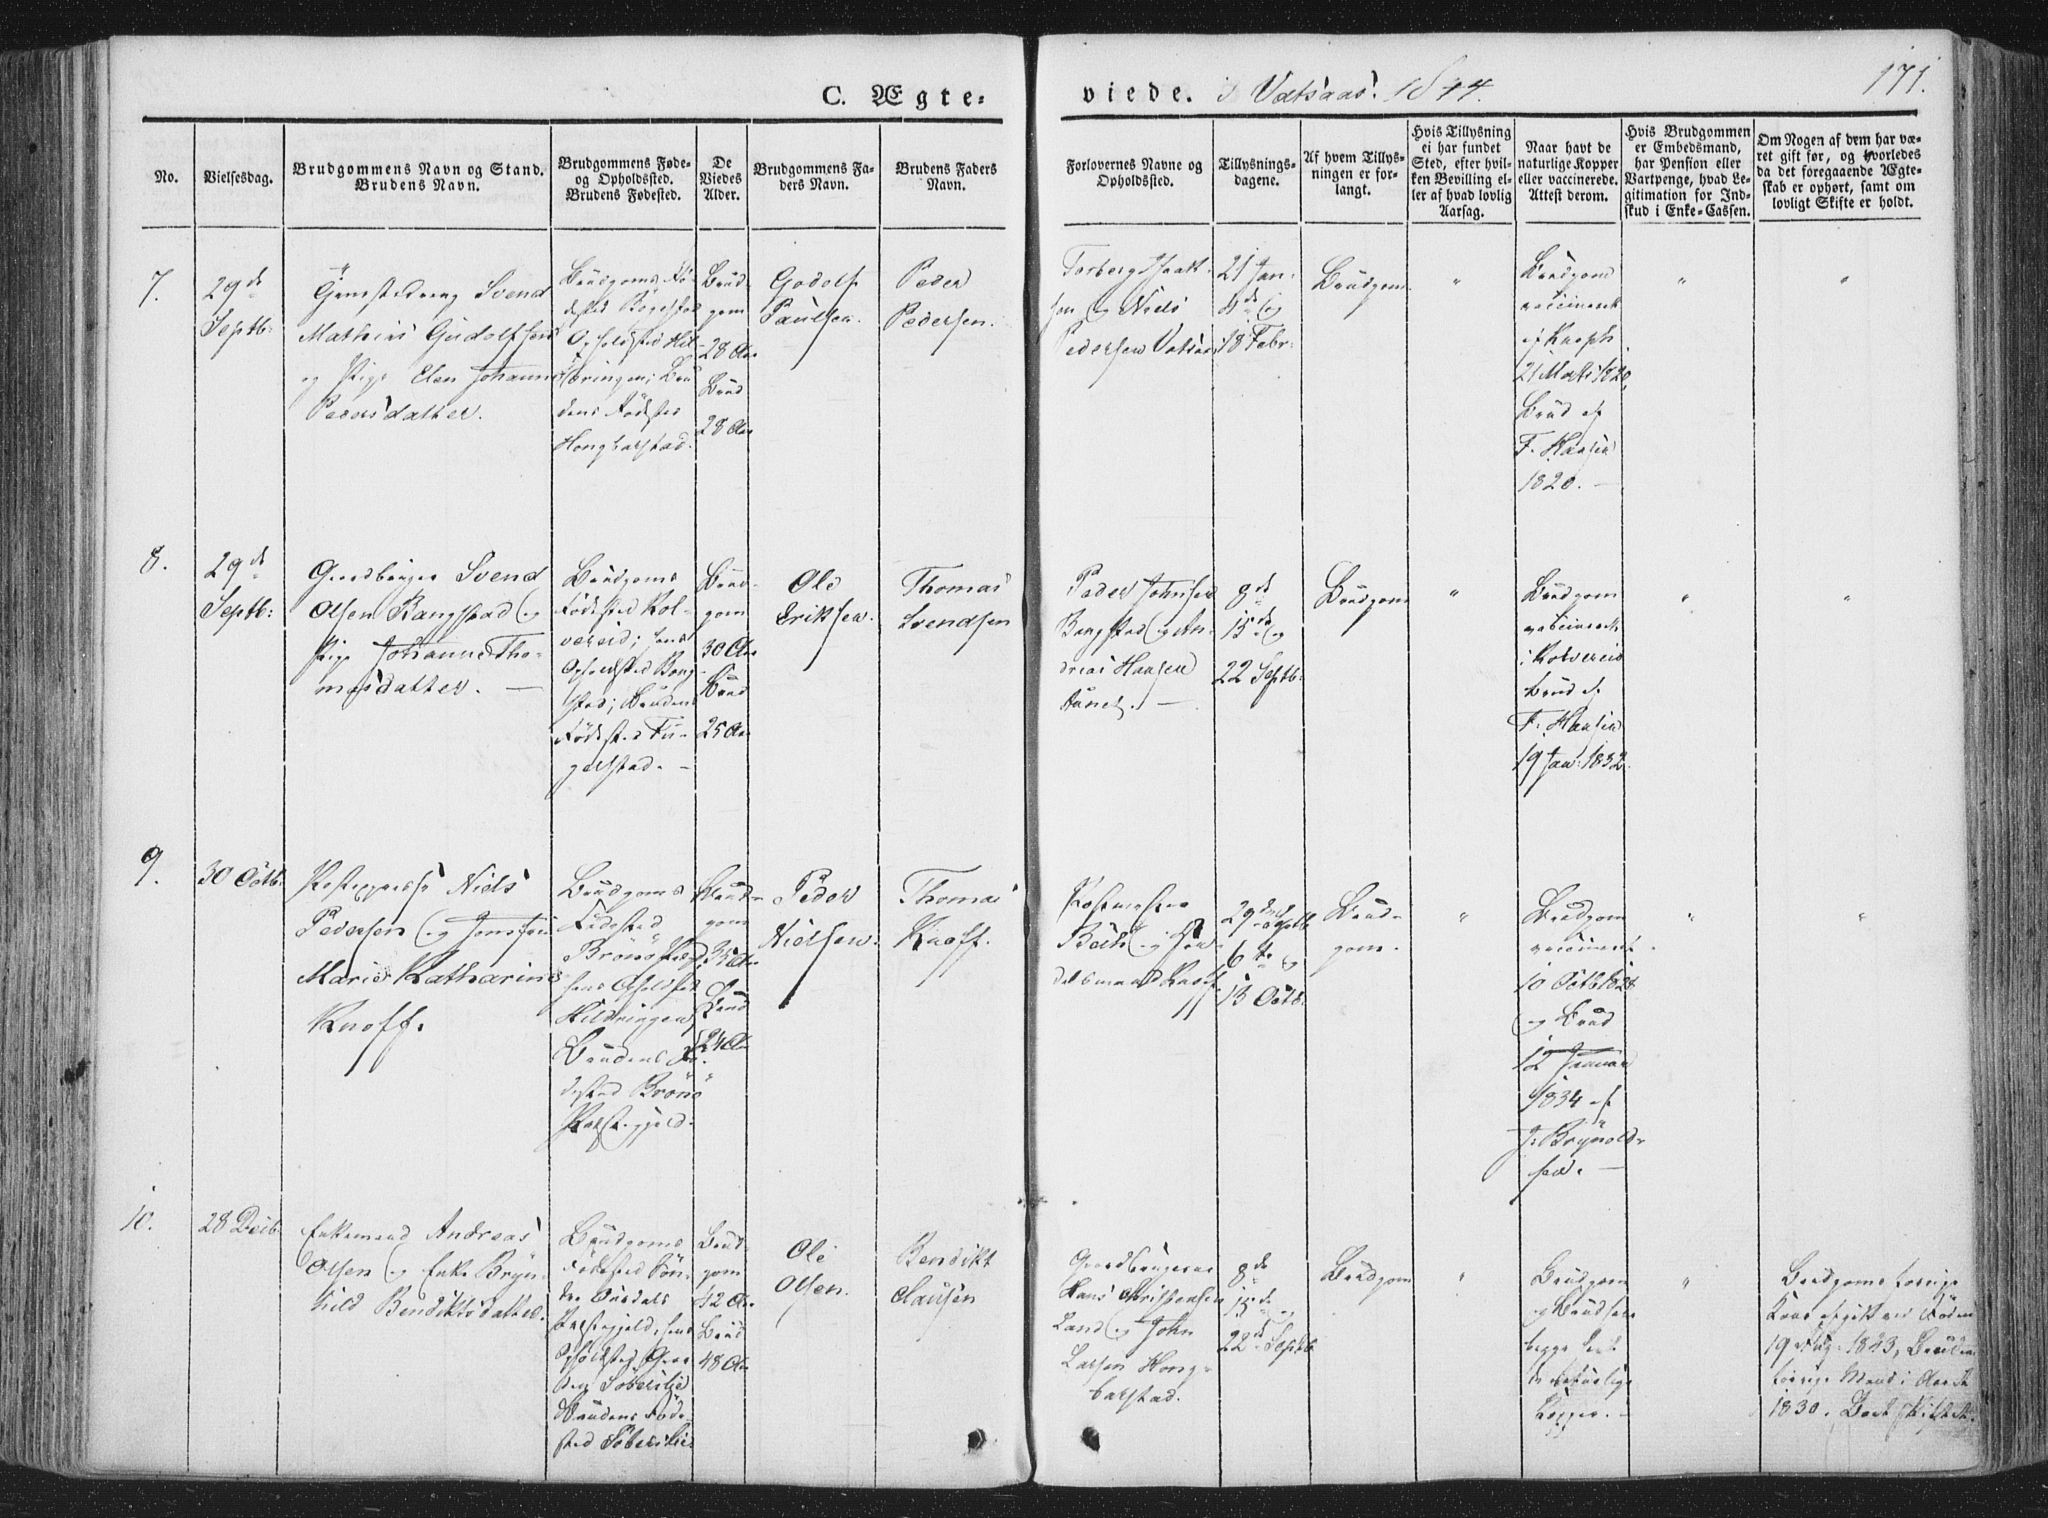 C. Ægte-
viede. i Vatsaas. 1844.
171.
No.
Vielsesdag.
Brudgommens Navn og Stand.
Brudens Navn.
Brudgommens Føde-
og Opholdssted.
Brudens Fødested.
De
Viedes
Alder.
Brudgommens Fa-
ders Navn.
Brudens Faders
Navn.
Forlovernes Navne og
Opholdssted.
Tillysnings-
dagene.
Af hvem Tillys-
ningen er for-
langt.
Hvis Tillysning
ei har fundet
Sted, efter hvil-
ken Bevilling el-
ler af hvad lovlig
Aarsag.
Naar havt de
naturlige Kopper
eller vaccinerede.
Attest derom.
Hvis Brudgommen
er Embedsmand,
har Pension eller
Vartpenge, hvad Le-
gitimation for Ind-
skud i Enke-Cassen.
Om Nogen af dem har væ-
ret gift før, og hvorledes
da det foregaaende Ægte-
skab er ophørt, samt om
lovligt Skifte er holdt.
7.
29de
Septb:
Svend
Mathias Gudolfsen
og Pige Elen Johanna
Pedersdatter.
Brudgoms Fø-
dested
Opholdssted Hil-
dringen; Bru
dens Fødested
Hongbarstad.
Brud-
gom
28 Aar
Brud
28 Aar
Godolf
Paulsen.
Peder
Pedersen.
Torberg Isaak-
sen og Niels
Pedersen Vatsaas
21 Jan-
4de og
18 Febr:
Brudgom
"
Brudgom
vaccineret
af Knoph
21 Marts 1820,
Brud af
F. Hansen
1820. —
"
"
8.
29de
Septb:
Gaardbruger Svend
Olsen Bangstad og
Pige Johanna Tho-
masdatter. —
Brudgoms
Fødested Kol-
vereid; hans
Opholdssted Bang
stad; Brudens
Fødested Fu-
gelstad. -
Brud-
gom
30 Aar
Brud
25 Aar
Ole
Eriksen.
Thomas
Svendsen
Peder Johnsen
Bangstad og An-
dreas Hansen
Aunet. —
8de
15de og
22 Septb:
Brudgom
"
Brudgom
vaccineret
i Kolvereid
Brud af
F. Hansen
19 Jan: 1832.
"
"
9.
30 Octb:
Niels
Pedersen og Jomfru
Marie Katharina
Knoff.
Brudgoms
Fødested
Brönö
hans Opholdsted
Hildringen,
Brudens Fø-
dested Brönö
Præstegjeld.
Brud-
gom
35 Aar
Brud
24 Aar
Peder
Nielsen.
Thomas
Knoff.
Postmester
Bech og Han-
delsmand Knoff
29de Septb
6te og
13 Octb.
Brud-
gom.
"
Brudgom
vaccineret
10 Octb 1828
og Brud
12 Januar
1834 af
J. Brynold-
sen. —
"
"
10.
28 Decb.
Enkemand Andreas
Olsen og Enke Bryn-
hild Bendiktsdatter.
Brudgoms
Fødested Sön-
dre Aurdals
Præstegjeld, hans
Opholdssted Gaar
den Söberslie
Brudens Föde-
sted Söberslie
Brud-
gom
42 Aar
Brud
48 Aar
Ole
Olsen.
Bendikt
Clausen
Gaardbrugerne
Hans Christensen
Land og John
Larsen Hong-
barstad.
8de
15de og
22de Septb
Brudgom
"
Brudgom
og Brud have
begge havt
de naturlige
Kopper. -
"
Brudgoms forrige
Kone afgik ved Døden
19 Aug: 1843, Brudens
forrige Mand i Aaret
1830.